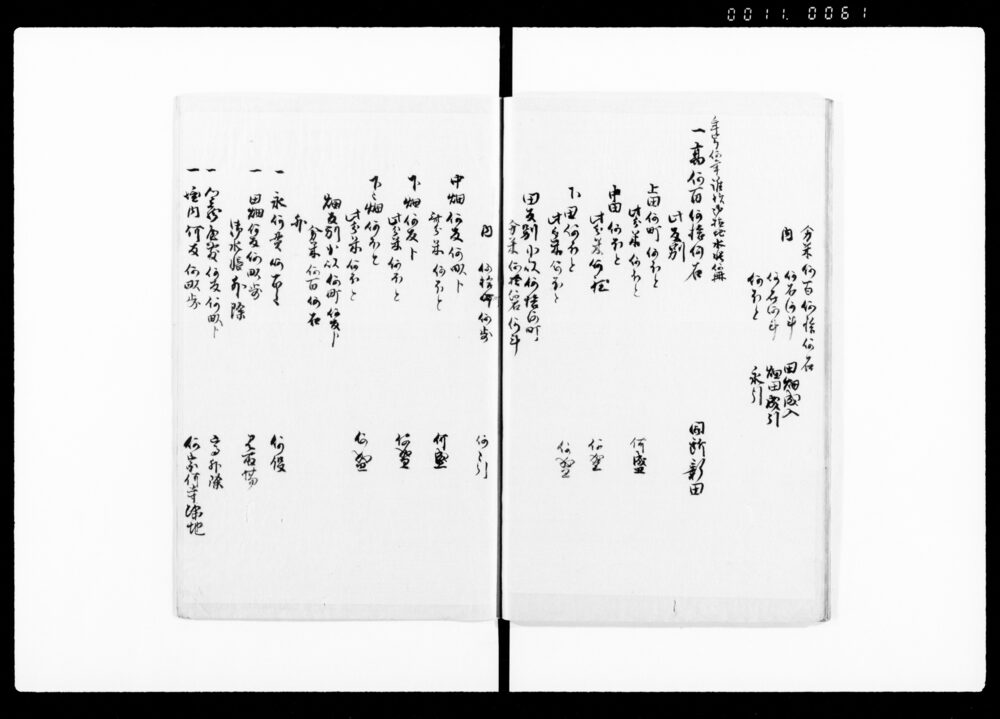 0011. 0061
分米何百何拾何石
内 何石何斗 田畑成入
何石何斗 畑田成引
何のと 永引
年号何年誰検地水帳何冊
一 高何百何拾何石 同所新田
此反別
上田何町何のと
此分米何のと 何盛
中田何のと
此分米何程 何盛
下田何のと
此分米何のと 何盛
田反別小以何拾何町
分米何拾何石何斗
内 何拾何歩 何々引
中畑何反何畝ト
此分米何のと 何盛
下畑何反ト
此分米何のと 何盛
下々畑何のと
此分米何のと 何盛
畑反別小以何町何反ト
分米何百何石
外
一 永何貫何百文 何役
一 田畑何反何畝歩 見取場
清水帳外除
一 何反何畝ト 高外除
一 境内何反何畝歩 何宗何寺除地